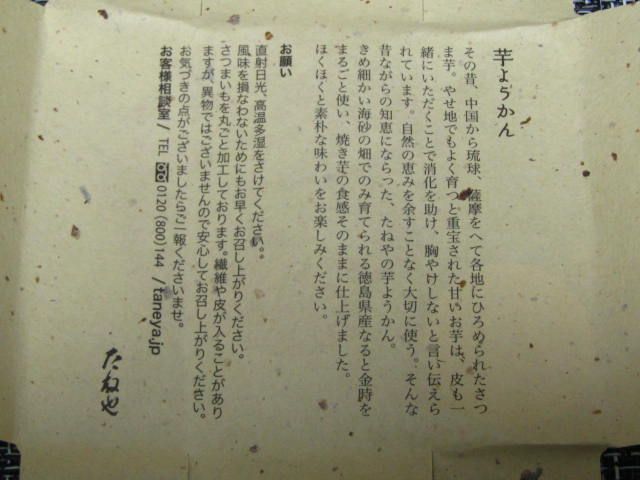 芋ようかん
その昔、中国から琉球、薩摩をへて各地にひろめられたさつ
ま芋。やせ地でもよく育つと重宝された甘いお芋は、皮も一
緒にいただくことで消化を助け、胸やけしないと言い伝えら
れています。自然の恵みを余すことなく大切に使う。そんな
昔ながらの知恵にならった、たねやの芋ようかん。
きめ細かい海砂の畑でのみ育てられる徳島県産なると金時を
まるごと使い、焼き芋の食感そのままに仕上げました。
ほくほくと素朴な味わいをお楽しみください。
お願い
直射日光、高温多湿をさけてください。
風味を損なわないためにもお早くお召し上がりください。
さつまいもを丸ごと加工しております。繊維や皮が入ることがあり
ますが、異物ではございませんので安心してお召し上がりください。
お気づきの点がございましたらご一報くださいませ。
お客様相談室 / TEL 0120 (800)144 /taneya.jp
たねや